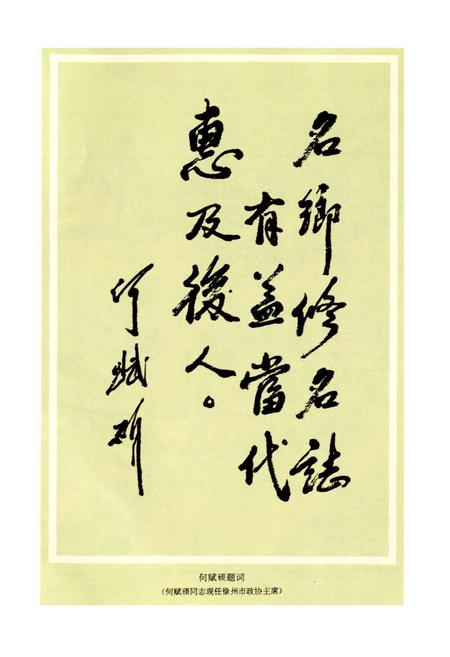 名鄉修名誌
有益當代
惠及後人。
何赋硕
何赋硕题词
(何赋硕同志现任徐州市政协主席)